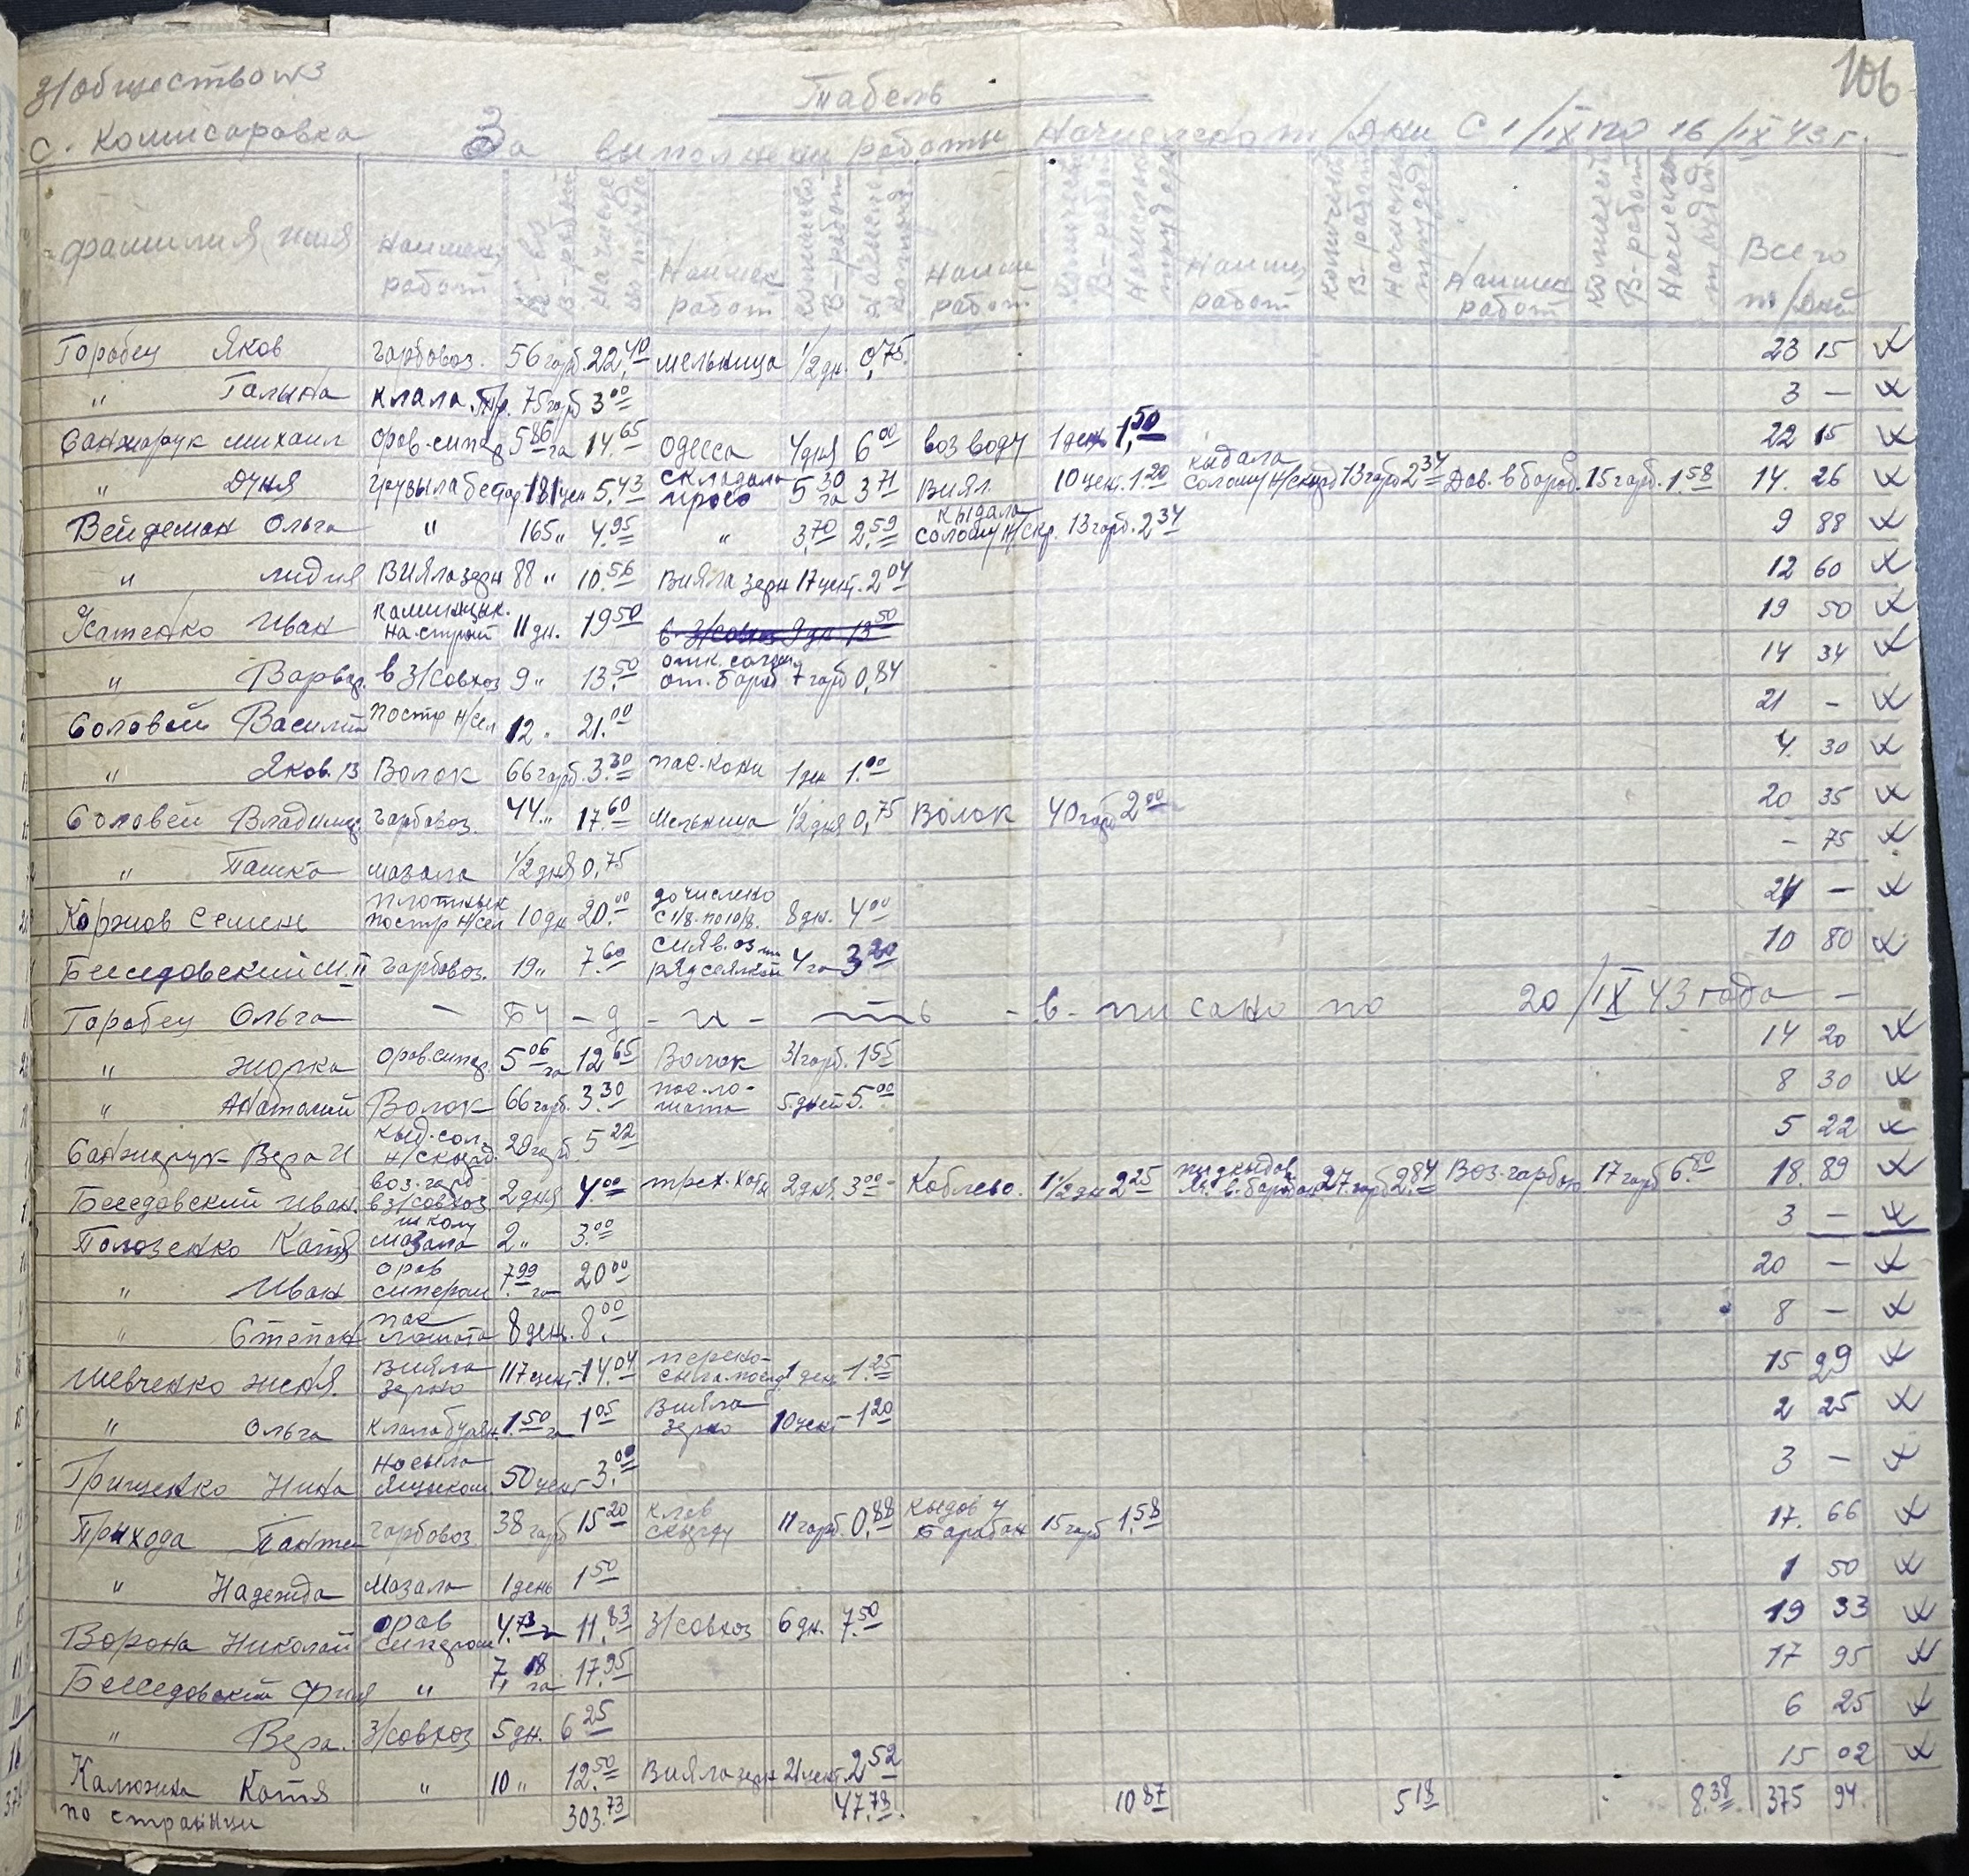 З/общество №3
106
Табель
с. Комисаровка За выполнени работы Начислено т/дни С 1/IX по 16/IX 43 г.
фамилия, имия Наимен. работ Начислено Наимен. работ Наимн. работ Наимн. работ Наимен. работ Всего т/дней
Горобец Яков гарбовоз. 56 гарб. 22,40 мельница 1/2 дн. 0,75 23 15
" Галына клала 75 гарб 3.00 3 —
Санжарук михаил оров. сипер 5 86 га 14.65 Одесса 4 дня 6 00 воз воду 1 ден 1,50 22 15
" Дуня 181 цен 5,43 складала просо 5 30 га 3 71 Виял. 10 цен. 1.20 кыдала солому Н/скирд 13 гарб 2 34 Дов. в бараб. 15 гарб. 1.58 14. 26
Вейдеман Ольга " 165 " 4.95 " 3,70 2,59 кыдала солому Н/скр. 13 гарб. 2 34 9 88
" лидия Вияла зерн 88 " 10.56 Вияла зерн 17 цент. 2 04 12 60
Усатенко Иван на строй 11 дн. 19 50 в З/совхоз 9 дн 13 50 19 50
" Варвар. в З/совхоз 9 " 13.50 от. бараб 7 гарб 0,84 14 34
Соловей Василий Постр Н/сел 12 " 21.00 21 —
" Яков. В Волок 66 гарб. 3.30 пас. кони 1 ден 1.00 4. 30
Соловей Владимир гарбовоз. 44 " 17.60 Мельница 1/2 дня 0,75 Волок 40 гарб 2 00 20 35
" Пашка мазала 1/2 дня 0,75 — 75
Коржов Семен плотнык постр Н/сел 10 дн 20.00 дочислено с 1/8. по 10/8. 8 дн. 4 00 24 —
Беседовский М. П гарбовоз. 19 " 7.60 рядсеялкой 4 га 3 20 10 80
Горобец Ольга — Бу — д — и — ть — в — пи сано по 20/IX 43 года —
" жорка оров сипер. 5 06 га 12 65 Волок 31 гарб. 1 55 14 20
" Анатолий Волок 66 гарб. 3.30 пас. ло-шата 5 дней 5.00 8 30
Санжарук Вера И кыд. сол. Н/скырд. 29 гарб 5 22 5 22
Беседовский Иван. воз. гарб. в З/совхоз. 2 дня 4 00 2 дня 3 00 Коблево. 1 1/2 дн 2 25 27 гарб 2.84 Воз. гарбою 17 гарб 6.80 18. 89
Полозенко Катя школу мазала 2 " 3.00 3 —
" Иван оров сипером 7.99 га 20 00 20 —
" Степан пас лошата 8 ден. 8.00 8 —
Шевченко женя. Вияла зерно 117 цент. 14.04 1 ден. 1.25 15 29
" Ольга 1.50 га 1 05 Вияла зерно 10 цент — 1 20 2 25
Грищенко Нина носыла ящиком 50 цент 3.00 3 —
Прихода гарбовоз. 38 гарб 15 20 клав скырду 11 гарб. 0.88 кыдов у барабан 15 гарб 1.58 17. 66
" Надежда Мазала 1 день 1 50 1 50
Ворона Николай оров сипером 4.73 га 11.83 З/совхоз 6 дн. 7.50 19 33
Беседовский " 7, 18 га 17.95 17 95
" Вера. З/совхоз 5 дн. 6 25 6 25
Калюжна Катя " 10 " 12.50 Вияла зерн 21 цент. 2 52 15 02
по страници 303.73 47.78. 10 87 5 18 8.38 375 94.